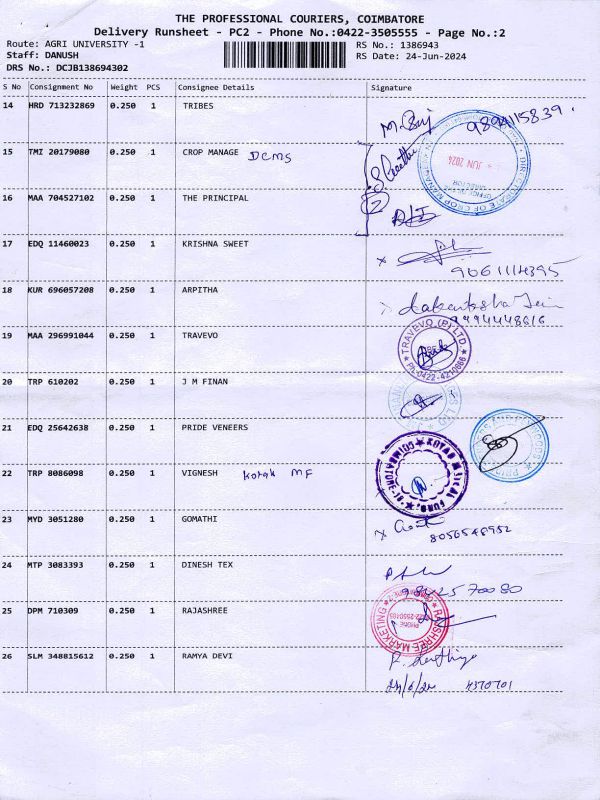 THE PROFESSIONAL COURIERS, COIMBATORE
Delivery Runsheet - PC2 - Phone No.:0422-3505555 - Page No.:2
Route: AGRI UNIVERSITY -1 RS No.: 1386943
Staff: DANUSH RS Date: 24-Jun-2024
DRS No.: DCJB138694302
S No Consignment No Weight PCS Consignee Details Signature
14 HRD 713232869 0.250 1 TRIBES
9894115839
15 TMI 20179080 0.250 1 CROP MANAGE DCMS
JUN 2024
16 MAA 704527102 0.250 1 THE PRINCIPAL
17 EDQ 11460023 0.250 1 KRISHNA SWEET
18 KUR 696057208 0.250 1 ARPITHA
9994448616
19 MAA 296991044 0.250 1 TRAVEVO
TRAVEVO (P) LTD
Ph:0422-4210666
20 TRP 610202 0.250 1 J M FINAN
21 EDQ 25642638 0.250 1 PRIDE VENEERS
22 TRP 8086098 0.250 1 VIGNESH Kotak MF
23 MYD 3051280 0.250 1 GOMATHI
8056548952
24 MTP 3083393 0.250 1 DINESH TEX
9842570080
25 DPM 710309 0.250 1 RAJASHREE
RAJSHREE MARKETING
PHONE
26 SLM 348815612 0.250 1 RAMYA DEVI
24/6/24 4370701